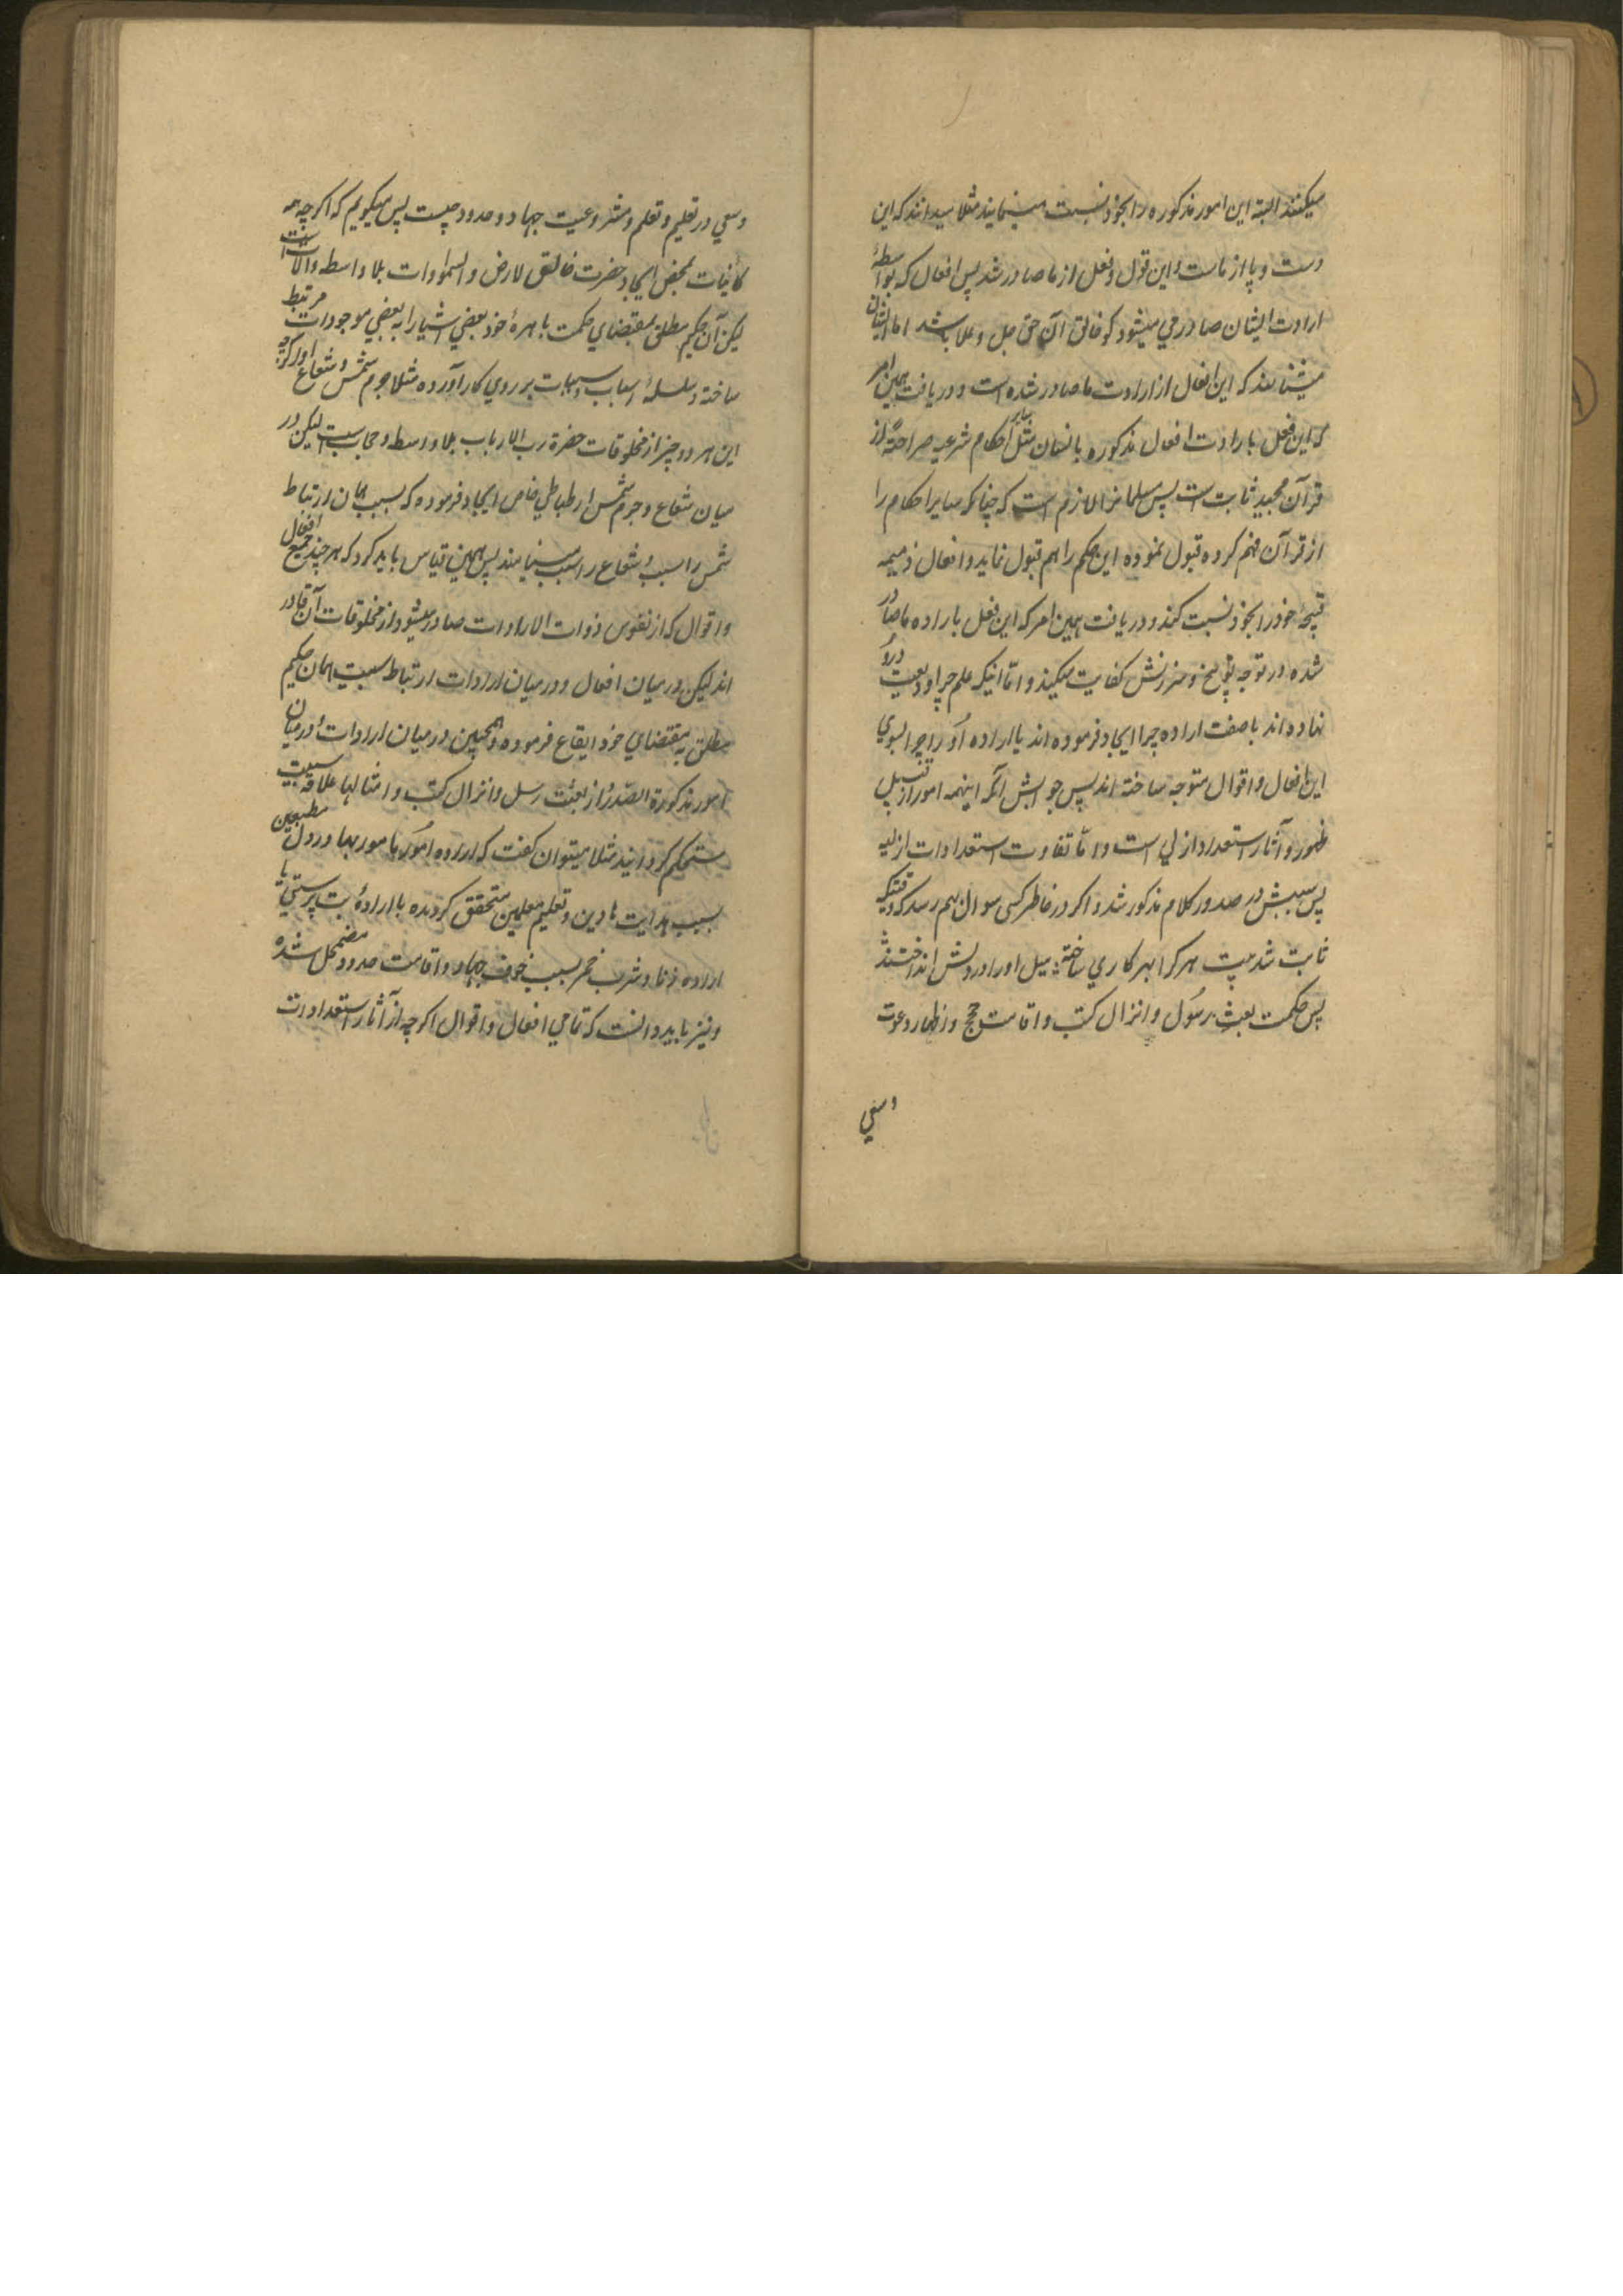 میکنند البته این امور مذکوره را بخود نسبت مینمایند مثلا میدانند که این
دست و پا از ماست و این قول و فعل از ما صادر شد پس افعال که بواسطهٔ
ارادت ایشان صادر می میشود کو خالق آن حق جل و علا باشد اما ایشان
میشناسند که این افعال از ارادت ما صادر شده است و دریافت همین امر
که این فعل بارادت افعال مذکوره بانسان مثل سایر احکام شرعیه صراحةً از
قرآن مجید ثابت است پس مسلمانرا لازم است که چنانکه سایر احکام را
از قرآن فهم کرده قبول نموده این حکم را هم قبول نماید و افعال ذمیمه
قبیحهٔ خود را بخود نسبت کند و دریافت همین امر که این فعل باراده ما صادر
شده در توجه توبیخ و سرزنش کفایت میکند و اما اینکه علم چرا ودیعت درو
نهاده اند یا صفت اراده چرا ایجاد فرموده اند یا اراده او را چرا بسوی
این افعال و اقوال متوجه ساخته اند پس جوابش آنکه اینهمه امور از قبیل
ظهور و آثار استعداد ازلی است و اما تفاوت استعدادات ازلیه
پس سببش در صدور کلام مذکور شد و اکر در خاطر کسی سوال بهم رسد که وقتیکه
ثابت شد بیت هر کرا بهر کاری ساختند میل او را در دلش انداختند
پس حکمت بعث رسول و انزال کتب و اقامت حجج و اظهار دعوت
و سعی
و سعی در تعلیم و تعلم و مشروعیت جهاد و حدود چیست پس میکویم که اکرچه همه
کائنات بمحض ایجاد حضرت خالق الارض و السماوات بلا واسطه و آلات است
لیکن آن حکیم مطلق بمقتضای حکمت باهرهٔ خود بعضی اشیا را به بعضی موجودات مرتبط
ساخته و سلسلهٔ اسباب و مسببات بر روی کار آورده مثلا جرم شمس و شعاع او را کو
این هر دو چیز از مخلوقات حضرة رب الارباب بلا واسطه و حجاب است لیکن در
میان شعاع و جرم شمس ارطباطی خاص ایجاد فرموده که بسبب همان ارتباط
شمس را سبب و شعاع را مسبب مینامند پس بهمین قیاس باید کرد که هر چند جمیع افعال
و اقوال که از نفوس ذوات الارادات صادر میشود از مخلوقات آن قادر
اند لیکن در میان افعال و در میان ارادات ارتباط سببیت همان حکیم
مطلق بمقتضای خود ایقاع فرموده و همچنین در میان ارادات و در میان
امور مذکورة الصدر از بعثت رسل و انزال کتب و امثالها علاقه سببیت
مستحکم کردانید مثلا میتوان کفت که اراده امور مامور بها در دل مطیعین
بسبب هدایت هادین و تعلیم معلمین متحقق کردیده یا ارادهٔ بت پرستی یا
اراده زنا و شرب خمر بسبب خوف جهاد و اقامت حدود مضمحل شده
و نیز باید دانست که تمامی افعال و اقوال اکرچه از آثار استعدادات